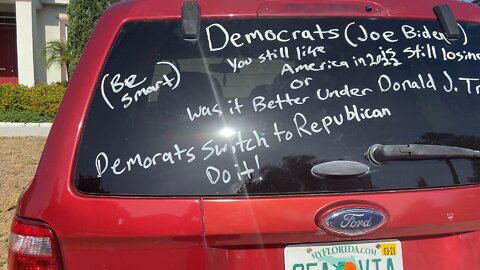 Democrats (Joe Biden)
(Be
Smart)
You still like is still losing
America in 2022
or
Was it Better Under Donald J. Tr
Demorats Switch to Republican
Do it!
Ford
MYFLORIDA.COM
03-23